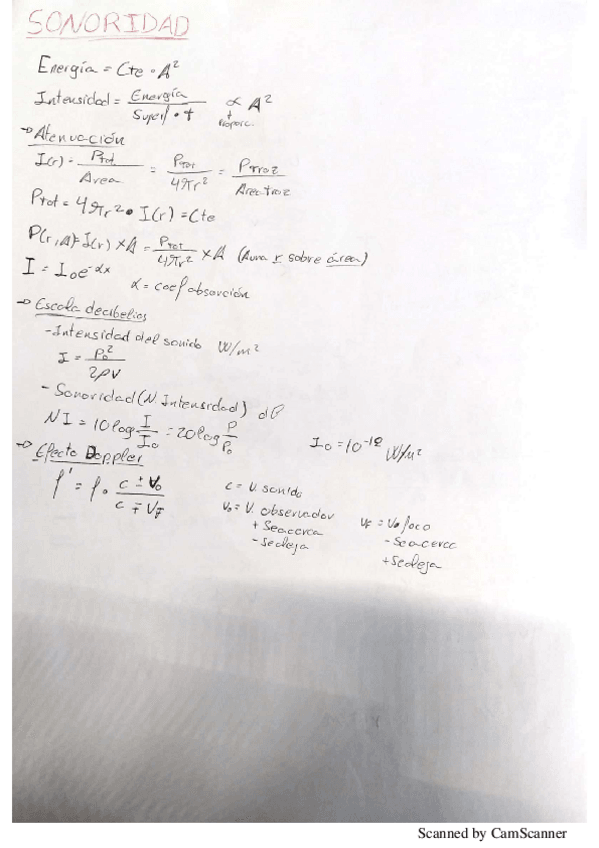 SONORIDAD
Energía = Cte · A²
Intensidad = Energía / Superf · t ∝ A²
Proporc.
→ Atenuación
I(r) = Ptot / Area = Ptot / 4πr² = Ptroz / Area troz
Ptot = 4πr² · I(r) = Cte
P(r,A) = I(r) × A = Ptot / 4πr² × A ( r sobre área)
I = I₀e^-αx α = coef absorción
→ Escala decibelios
- Intensidad del sonido W/m²
I = P₀² / 2ρv
- Sonoridad (N. Intensidad)
NI = 10 log I / I₀ = 20 log P / P₀ I₀ = 10⁻¹² W/m²
→ Efecto Doppler
f' = f · c ± v₀ / c ∓ vF
c = V. sonido
v₀ = V. observador
+ Se acerca
- Se aleja
vF = V foco
- Se acerca
+ Se aleja
Scanned by CamScanner